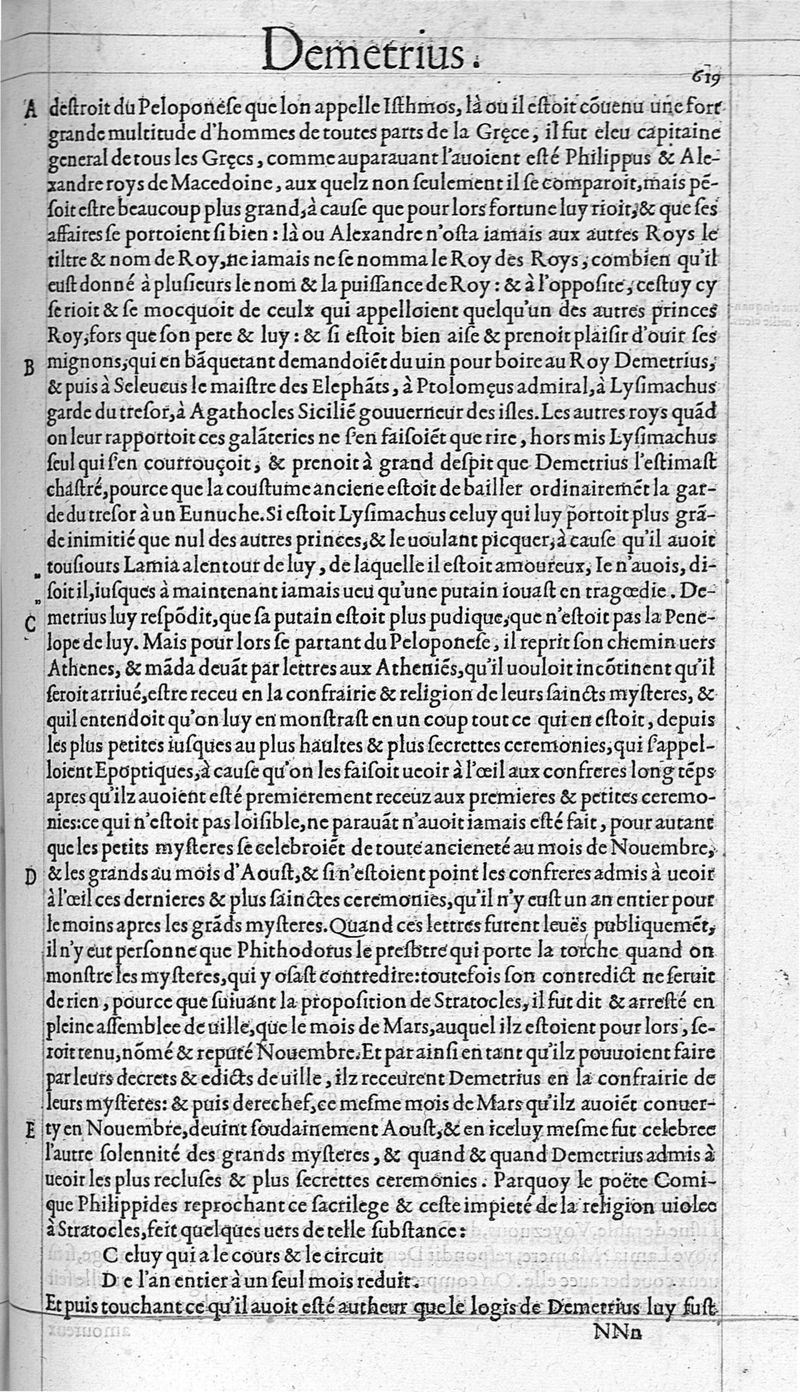 Demetrius.
619
A deſtroit du Peloponeſe que lon appelle Iſthmos, là ou il eſtoit cõuenu une fort
grande multitude d'hommes de toutes parts de la Gręce, il fut eleu capitaine
general de tous les Gręcs, comme auparauant l'auoient eſté Philippus & Ale-
xandre roys de Macedoine, aux quelz non ſeulement il ſe comparoit, mais pẽ-
ſoit eſtre beaucoup plus grand, à cauſe que pour lors fortune luy rioit, & que ſes
affaires ſe portoient ſi bien : là ou Alexandre n'oſta iamais aux autres Roys le
tiltre & nom de Roy, ne iamais ne ſe nomma le Roy des Roys, combien qu'il
euſt donné à pluſieurs le nom & la puiſſance de Roy : & à l'oppoſite, ceſtuy cy
ſe rioit & ſe mocquoit de ceulx qui appelloient quelqu'un des autres princes
Roy, fors que ſon pere & luy : & ſi eſtoit bien aiſe & prenoit plaiſir d'ouir ſes
B mignons, qui en bãquetant demandoiẽt du uin pour boire au Roy Demetrius,
& puis à Seleucus le maiſtre des Elephãts, à Ptolomęus admiral, à Lyſimachus
garde du treſor, à Agathocles Sicilié gouuerneur des iſles. Les autres roys quãd
on leur rapportoit ces galãteries ne ſ'en faiſoiẽt que rire, hors mis Lyſimachus
ſeul qui ſ'en courrouçoit, & prenoit à grand deſpit que Demetrius l'eſtimaſt
chaſtré, pource que la couſtume anciene eſtoit de bailler ordinairemẽt la gar-
de du treſor à un Eunuche. Si eſtoit Lyſimachus celuy qui luy portoit plus grã-
de inimitié que nul des autres princes, & le uoulant picquer, à cauſe qu'il auoit
„ touſiours Lamia alentour de luy, de laquelle il eſtoit amoureux, Ie n'auois, di-
„ ſoit il, iuſques à maintenant iamais ueu qu'une putain iouaſt en tragœdie. De-
C metrius luy reſpõdit, que ſa putain eſtoit plus pudique, que n'eſtoit pas la Pene-
lope de luy. Mais pour lors ſe partant du Peloponeſe, il reprit ſon chemin uers
Athenes, & mãda deuãt par lettres aux Atheniẽs, qu'il uouloit incõtinent qu'il
ſeroit arriué, eſtre receu en la confrairie & religion de leurs ſaincts myſteres, &
quil entendoit qu'on luy en monſtraſt en un coup tout ce qui en eſtoit, depuis
les plus petites iuſques au plus haultes & plus ſecrettes ceremonies, qui ſ'appel-
loient Epoptiques, à cauſe qu'on les faiſoit ueoir à l'œil aux confreres long tẽps
apres qu'ilz auoient eſté premierement receuz aux premieres & petites ceremo-
nies: ce qui n'eſtoit pas loiſible, ne parauãt n'auoit iamais eſté fait, pour autant
que les petits myſteres ſe celebroiẽt de toute ancieneté au mois de Nouembre,
D & les grands au mois d'Aouſt, & ſi n'eſtoient point les confreres admis à ueoir
à l'œil ces dernieres & plus ſainctes ceremonies, qu'il n'y euſt un an entier pour
le moins apres les grãds myſteres. Quand ces lettres furent leuës publiquemẽt,
il n'y eut perſonne que Phithodorus le preſbtre qui porte la torche quand on
monſtre les myſteres, qui y oſaſt contredire: toutefois ſon contredict ne ſeruit
de rien, pource que ſuiuant la propoſition de Stratocles, il fut dit & arreſté en
pleine aſſemblee de uille, que le mois de Mars, auquel ilz eſtoient pour lors, ſe-
roit tenu, nõmé & reputé Nouembre. Et par ainſi en tant qu'ilz pouuoient faire
par leurs decrets & edicts de uille, ilz receurent Demetrius en la confrairie de
leurs myſteres: & puis derechef, ce meſme mois de Mars qu'ilz auoiẽt conuer-
E ty en Nouembre, deuint ſoudainement Aouſt, & en iceluy meſme fut celebree
l'autre ſolennité des grands myſteres, & quand & quand Demetrius admis à
ueoir les plus recluſes & plus ſecrettes ceremonies. Parquoy le poëte Comi-
que Philippides reprochant ce ſacrilege & ceſte impieté de la religion uiolee
à Stratocles, feit quelques uers de telle ſubſtance:
C eluy qui a le cours & le circuit
D e l'an entier à un ſeul mois reduit.
Et puis touchant ce qu'il auoit eſté autheur que le logis de Demetrius luy fuſt
NNn